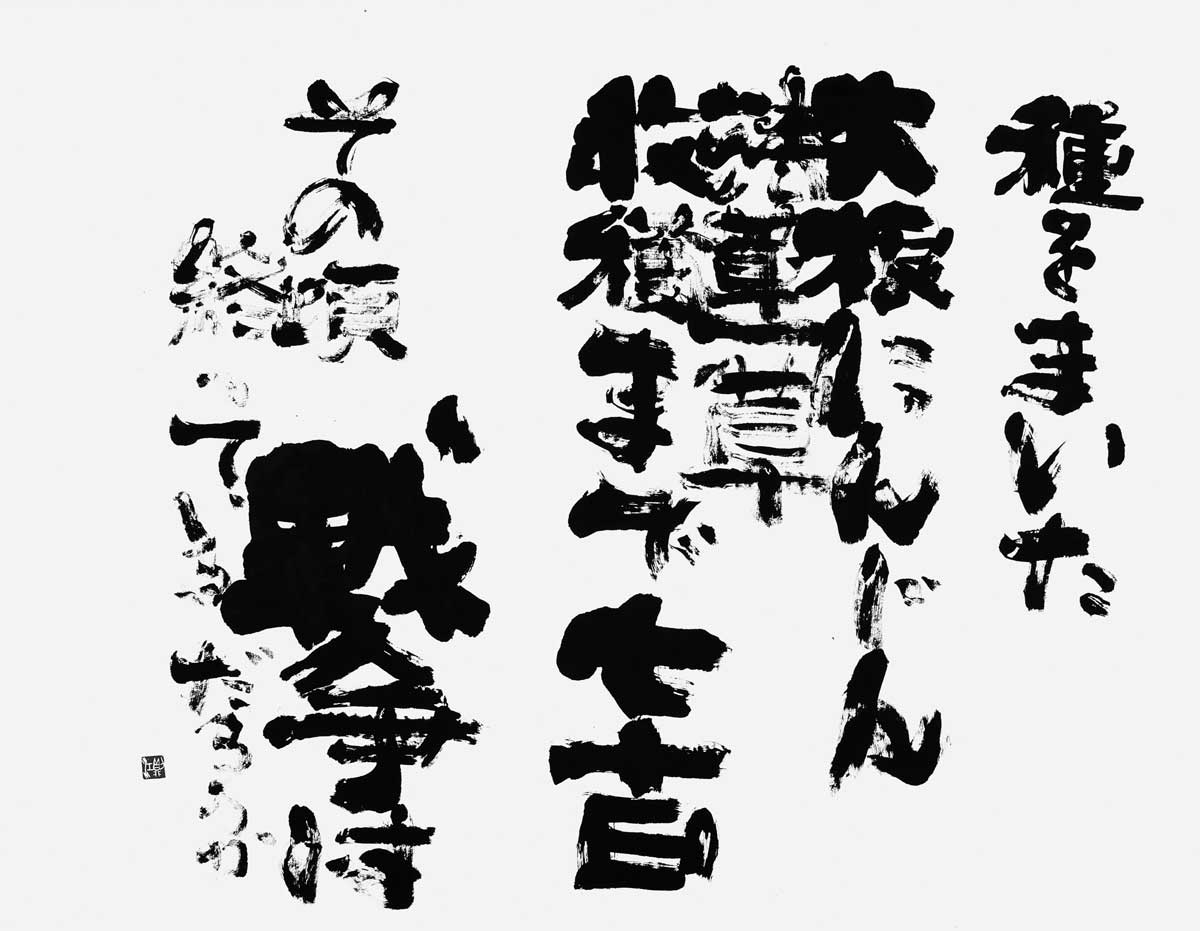 種をまいた
大根にんじん
法蓮草
収穫まで七十日
その頃
戦争は
終っているだろうか